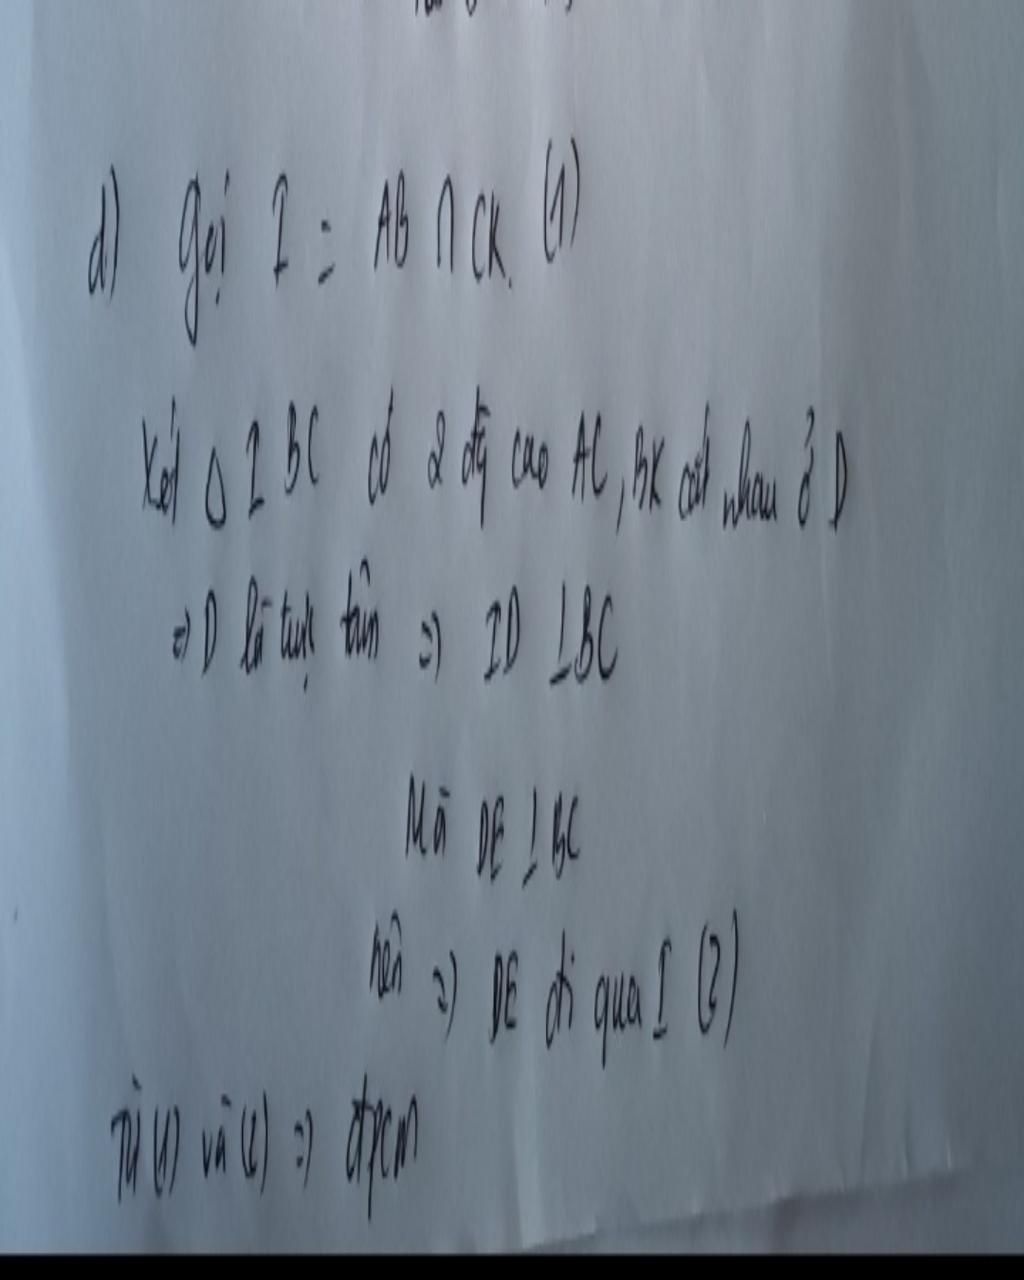 d) Gọi I = AB ∩ CK. (1)
Xét Δ IBC có 2 đg cao AC, BK cắt nhau ở D
=> D là trực tâm => ID ⊥ BC
Mà DE ⊥ BC
nên => DE đi qua I (2)
Từ (1) và (2) => đpcm